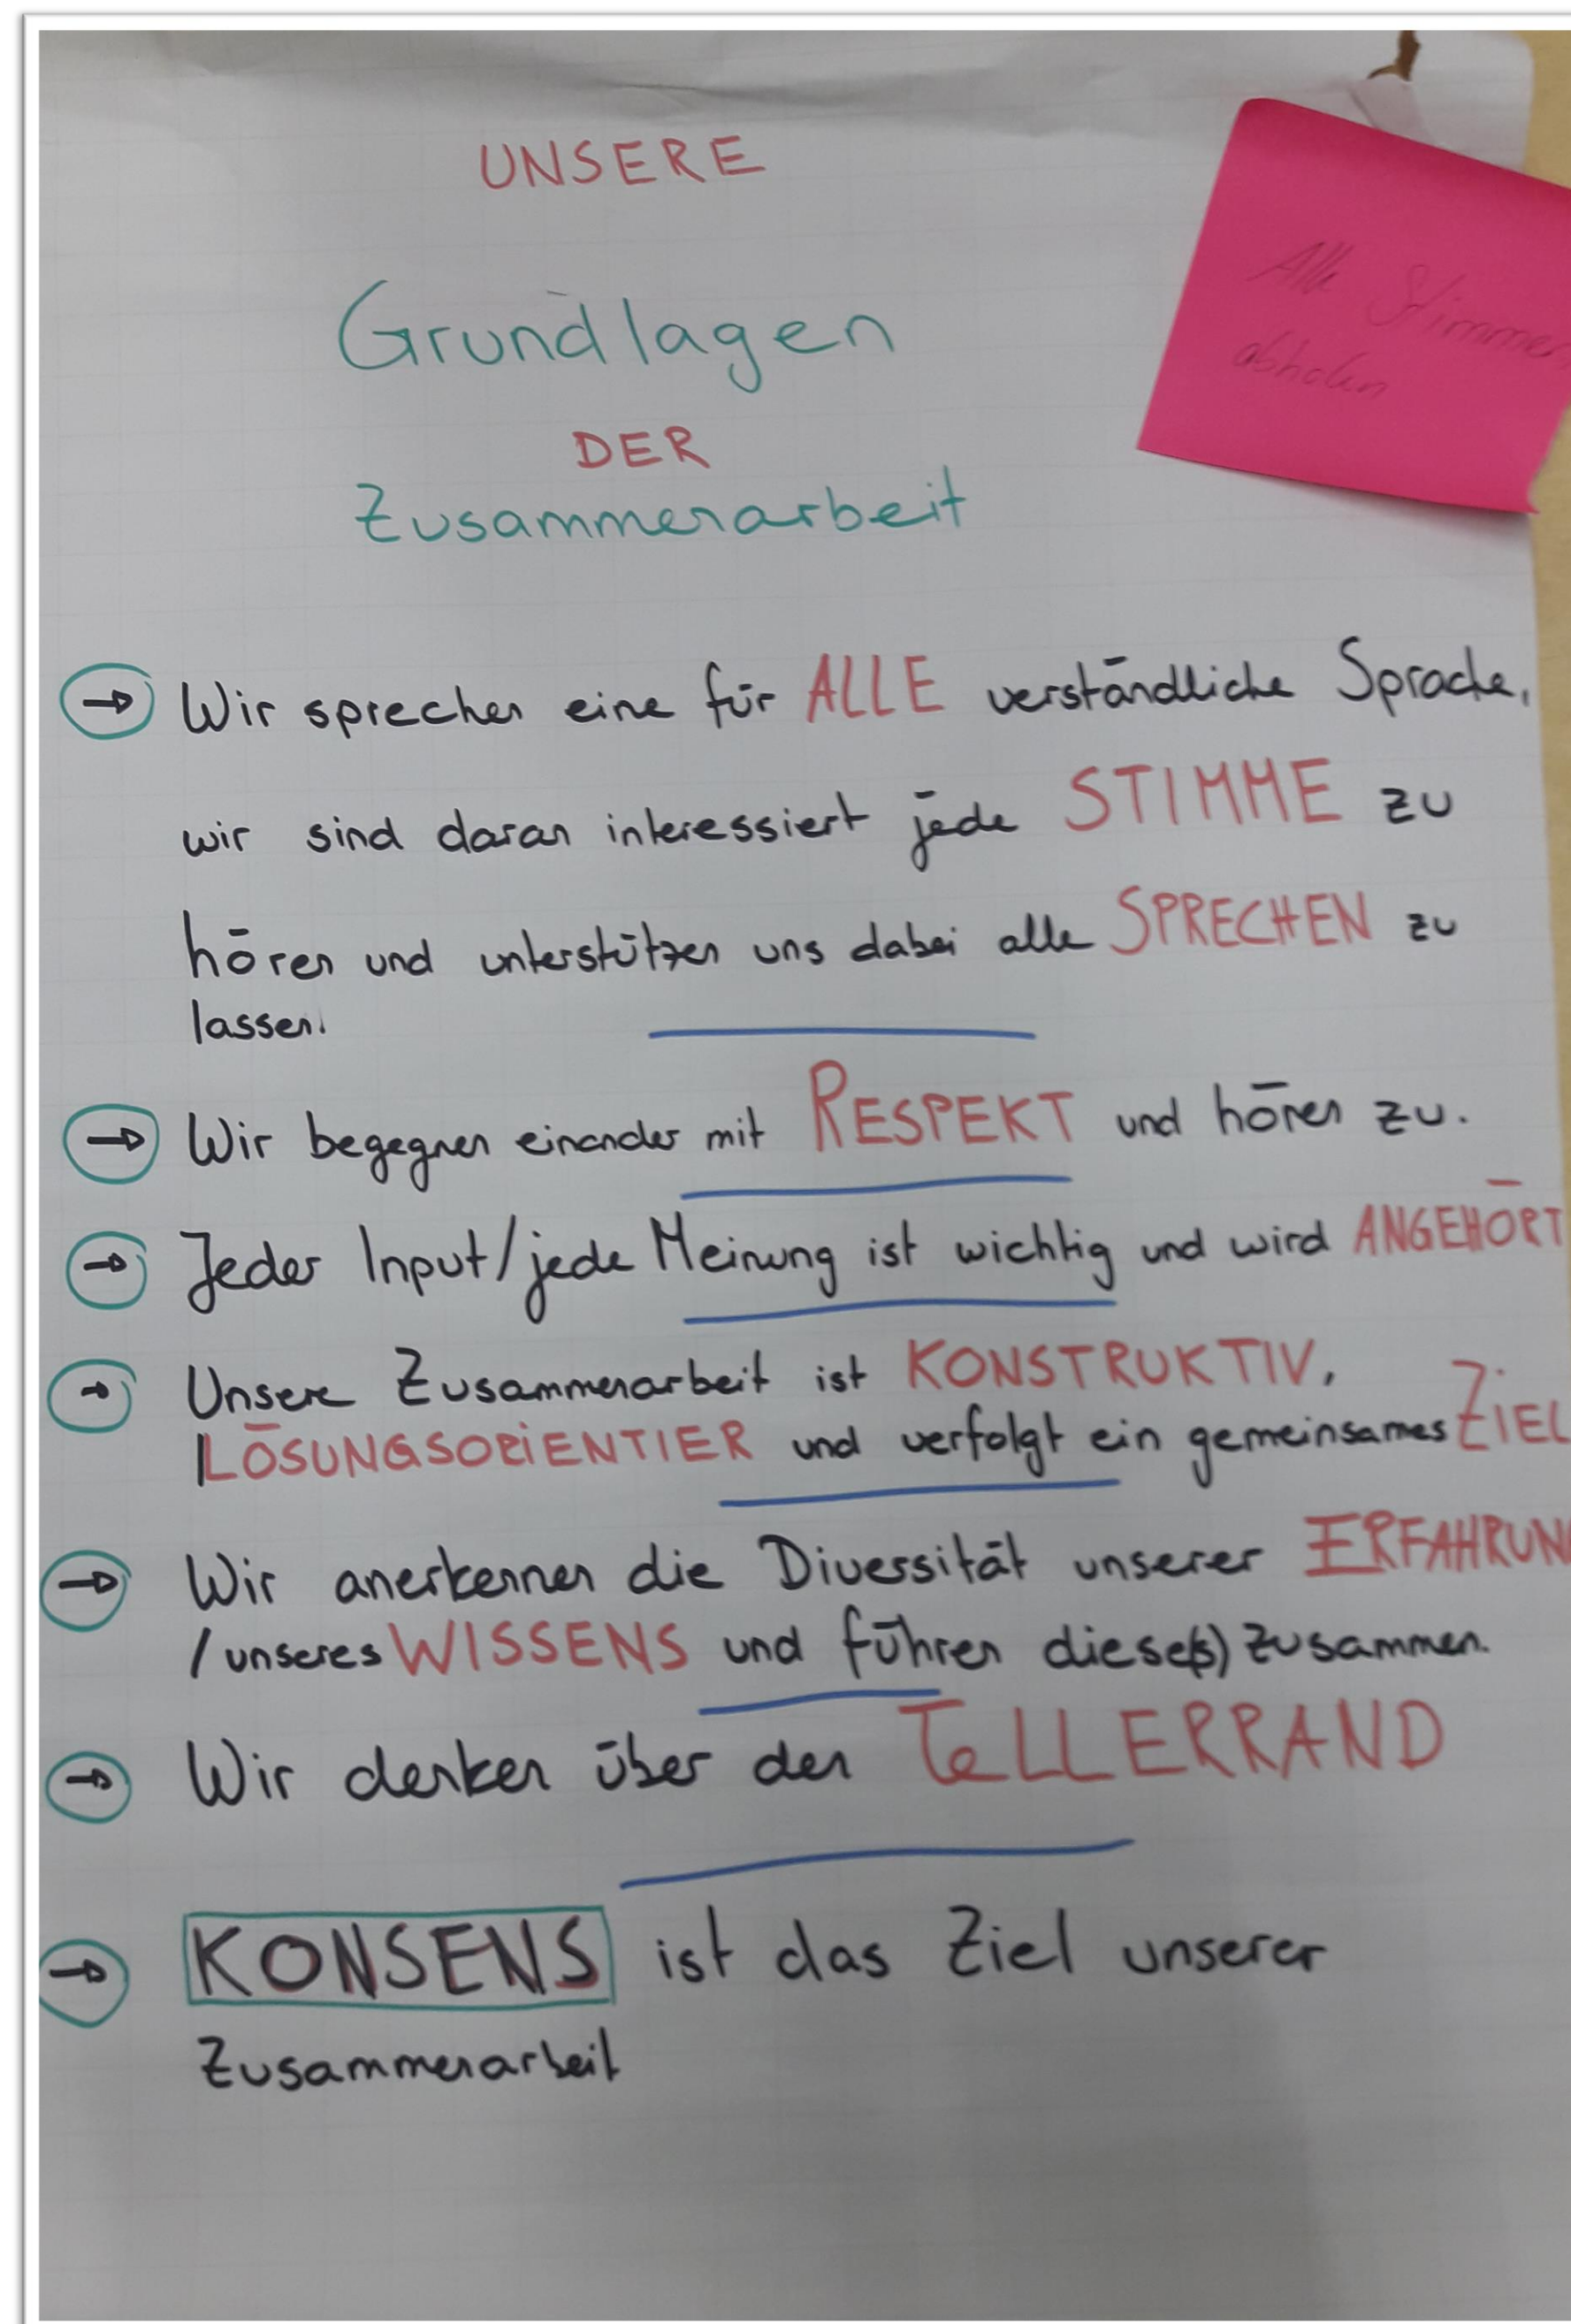 UNSERE
Grundlagen
DER
Zusammenarbeit
Alle Stimmen
abholen
→ Wir sprechen eine für ALLE verständliche Sprache,
wir sind daran interessiert jede STIMME zu
hören und unterstützen uns dabei alle SPRECHEN zu
lassen.
→ Wir begegnen einander mit RESPEKT und hören zu.
→ Jeder Input/jede Meinung ist wichtig und wird ANGEHÖRT
→ Unsere Zusammenarbeit ist KONSTRUKTIV,
LÖSUNGSORIENTIER und verfolgt ein gemeinsames ZIEL
→ Wir anerkennen die Diversität unserer ERFAHRUNG
/ unseres WISSENS und führen diese(s) zusammen.
→ Wir denken über den TeLLERRAND
→ KONSENS ist das Ziel unserer
Zusammenarbeit